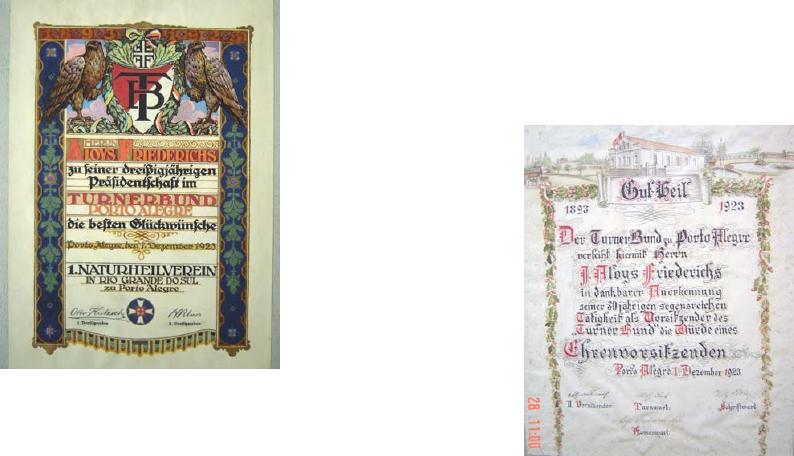 1893 1923
HERRN
ALOYS FRIEDERICHS
zu seiner dreißigjährigen
Präsidentschaft im
TURNERBUND
PORTO ALEGRE
die besten Glückwünsche
Porto Alegre, den 1. Dezember 1923
1. NATURHEILVEREIN
IN RIO GRANDE DO SUL
zu Porto Alegre
Gut Heil
1893 1923
Der Turner Bund zu Porto Alegre
verleiht hiermit Herrn
J. Aloys Friederichs
in dankbarer Anerkennung
seiner 30 jährigen segensreichen
Tätigkeit als Vorsitzender des
„Turner Bund" die Würde eines
Ehrenvorsitzenden
Porto Alegre 1. Dezember 1923
II Vorsitzender. Turnwart. Schriftwart.
28 11:00